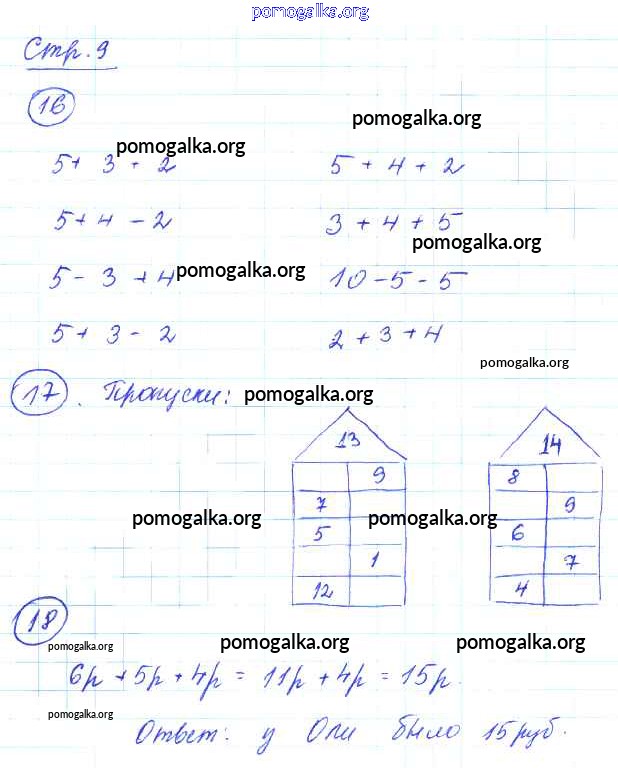 pomogalka.org
Стр. 9
16
pomogalka.org
pomogalka.org
5 + 3 + 2 5 + 4 + 2
5 + 4 - 2 3 + 4 + 5
pomogalka.org
5 - 3 + 4 pomogalka.org 10 - 5 - 5
5 + 3 - 2 2 + 3 + 4
pomogalka.org
17. Пропуски: pomogalka.org
13 14
9 8
7 9
pomogalka.org pomogalka.org
5 6
1 7
12 4
18
pomogalka.org pomogalka.org pomogalka.org
6р + 5р + 4р = 11р + 4р = 15р.
pomogalka.org
Ответ: у Оли было 15 руб.